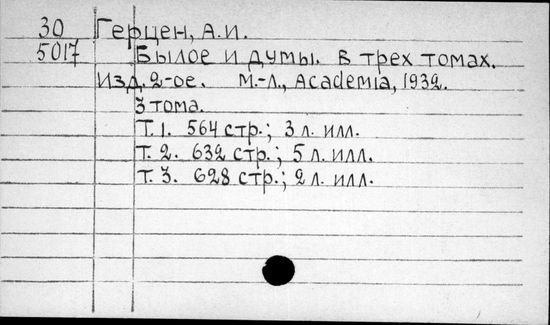 30 Герцен, А.И.
5017 Былое и думы. в трех томах.
Изд. 2-ое. М.-Л., Academia, 1932.
3 тома.
Т. 1. 564 стр.; 3 л. илл.
Т. 2. 632 стр.; 5 л. илл.
Т. 3. 628 стр.; 2 л. илл.